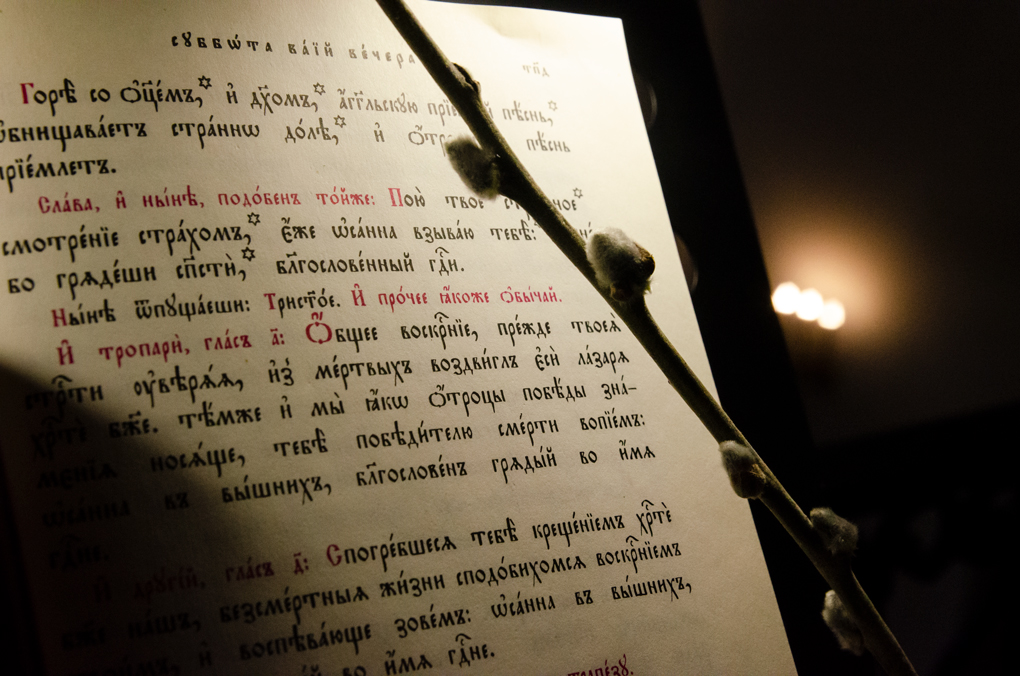 сꙋббѡ́та ва́їй ве́чера т҃пд
Горѣ̀ со ѻ҆ц҃е́мъ,* и҆ дх҃омъ,* а҆́гг҃льскꙋю пѣ́снь,*
ѡ҆бнища́ваетъ стра́ннѡ до́лѣ,* и҆ пѣ́снь
прїе́млетъ.
Сла́ва, и҆ ны́нѣ, подо́бенъ то́йже: Пою̀ твоѐ
смотре́нїе стра́хомъ,* є҆́же ѡ҆са́нна взыва́ю тебѣ̀:*
бо гряде́ши сп҃стѝ,* бл҃гослове́нный гдⷭ҇и.
Ны́нѣ ѿпꙋща́еши: Трист҃о́е. И҆ про́чее ꙗ҆́коже ѻ҆бы́чай.
И҆ тропарѝ, гла́съ а҃: Ѻ҆́бщее воскрⷭ҇нїе, пре́жде твоеѧ̀
стрⷭ҇ти ᲂу҆вѣрѧ́ѧ, и҆з̾ ме́ртвыхъ воздви́глъ є҆сѝ ла́зарѧ
хрⷭ҇тѐ бж҃е. тѣ́мже и҆ мы̀ ꙗ҆́кѡ ѻ҆́троцы побѣ́ды зна́-
мєнїѧ носѧ́ще, тебѣ̀ побѣди́телю сме́рти вопїе́мъ:
ѡ҆са́нна въ вы́шнихъ, бл҃гослове́нъ грѧды́й во и҆́мѧ
гдⷭ҇не.
И҆ дрꙋгі́й, гла́съ д҃: Спогре́бшесѧ тебѣ̀ креще́нїемъ хрⷭ҇тѐ
бж҃е на́шъ, безсме́ртныѧ жи́зни сподо́бихомсѧ воскрⷭ҇нїемъ
и҆ воспѣва́юще зове́мъ: ѡ҆са́нна въ вы́шнихъ,
во и҆́мѧ гдⷭ҇не.